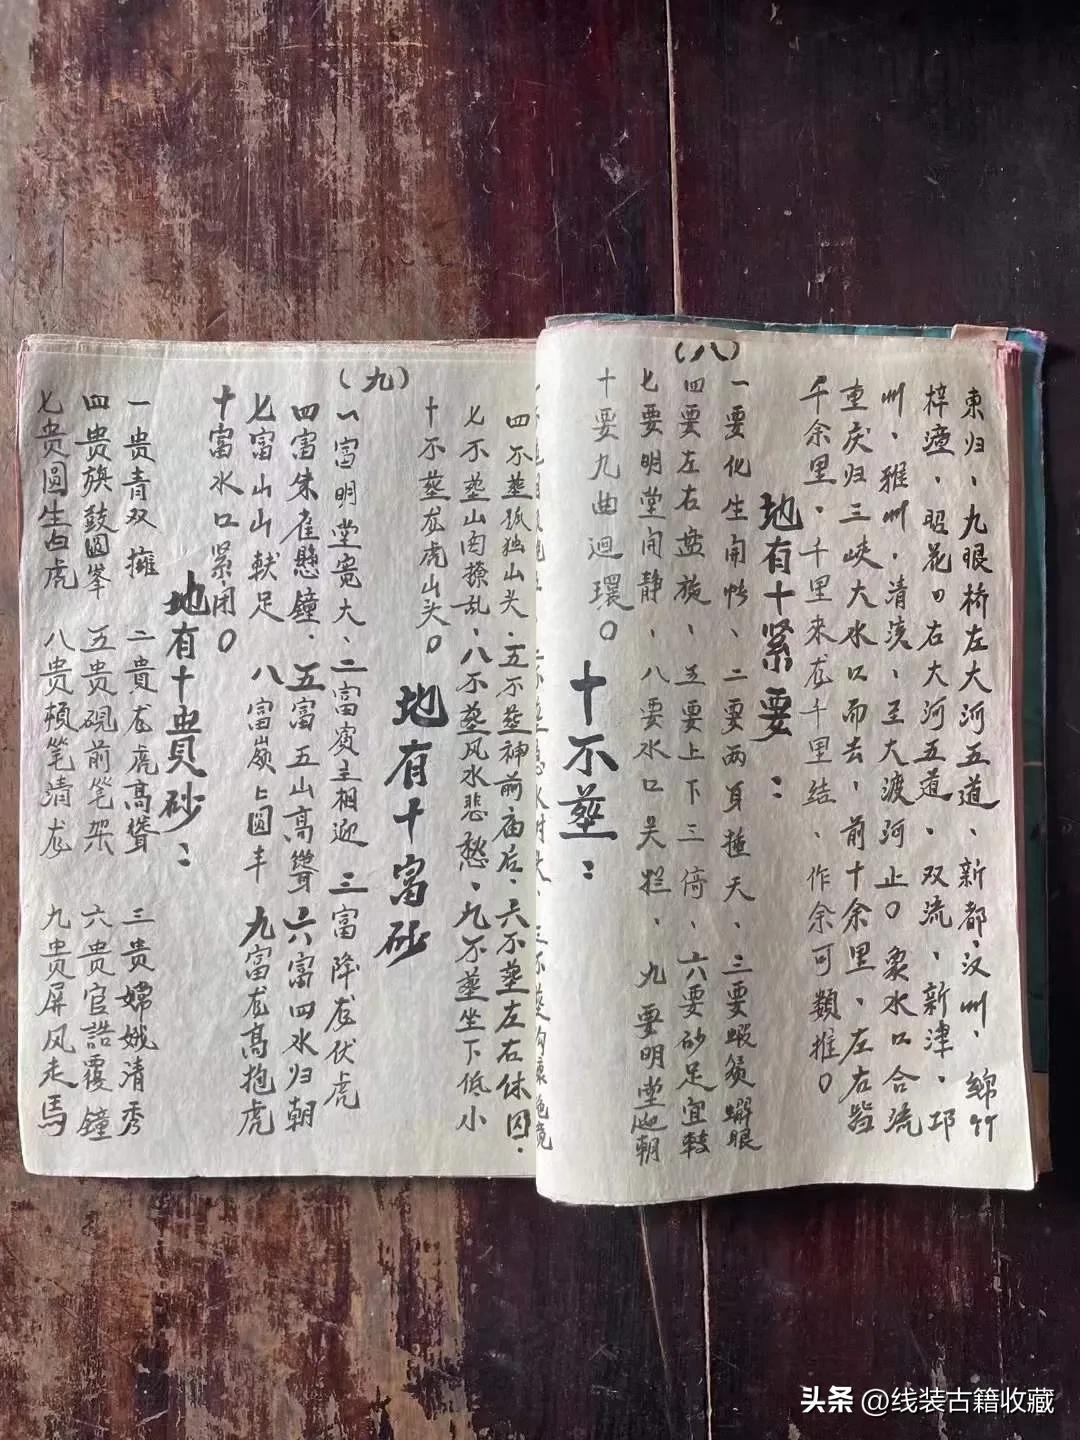 (八)
東归、九眼桥左大河五道、新都、汉州、綿竹
梓潼、昭花口右大河五道、双流、新津、邛
州、雅州、清溪、至大渡河止。象水口合流
重庆归三峽大水口而去，前十余里、左右皆
千余里，千里來龙千里结、作余可類推。
地有十紧要：
一要化生開帐、二要两耳插天、三要蝦须蠏眼
四要左右盘旋、五要上下三停、六要砂足宜轉
七要明堂開静、八要水口关拦、九要明堂迎朝
十要九曲迴環。
十不塟：
(九)
四不塟孤独山头、五不塟神前庙后、六不塟左右休囚、
七不塟山肉撩乱、八不塟风水悲愁、九不塟坐下低小
十不塟龙虎山头。
地有十富砂
一富明堂宽大、二富宾主相迎 三富降龙伏虎
四富朱雀懸鐘、五富五山高聳 六富四水归朝
七富山山 足 八富嶺上圆丰 九富龙高抱虎
十富水口紧闭。
地有十貴砂：
一贵青双擁 二貴龙虎高聳 三贵嫦娥清秀
四贵旗鼓圆峯 五贵硯前笔架 六贵官誥覆鐘
七贵圓生白虎 八贵頓笔清龙 九贵屏风走馬
头条 @线装古籍收藏